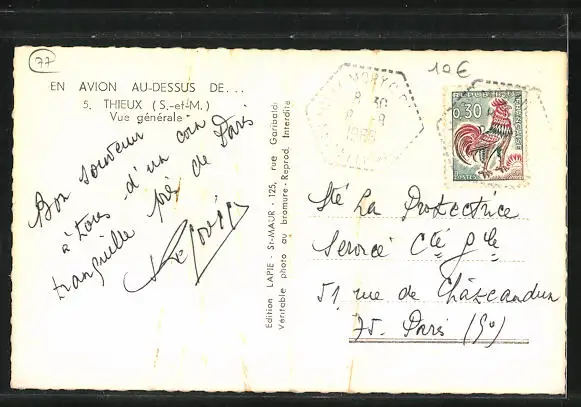 77
EN AVION AU-DESSUS DE...
5. THIEUX (S.-et-M.)
Vue générale
Bon souvenir
à tous d'un coin
tranquille près de Paris
Edition LAPIE - St-MAUR - 125, rue Garibaldi
Véritable photo au bromure - Reprod. Interdite
10€
8 30
REPUBLIQUE FRANCAISE
0,30
POSTES
Sté La Protectrice
Service Cté Gle
51 rue de Châteaudun
75. Paris (9e)